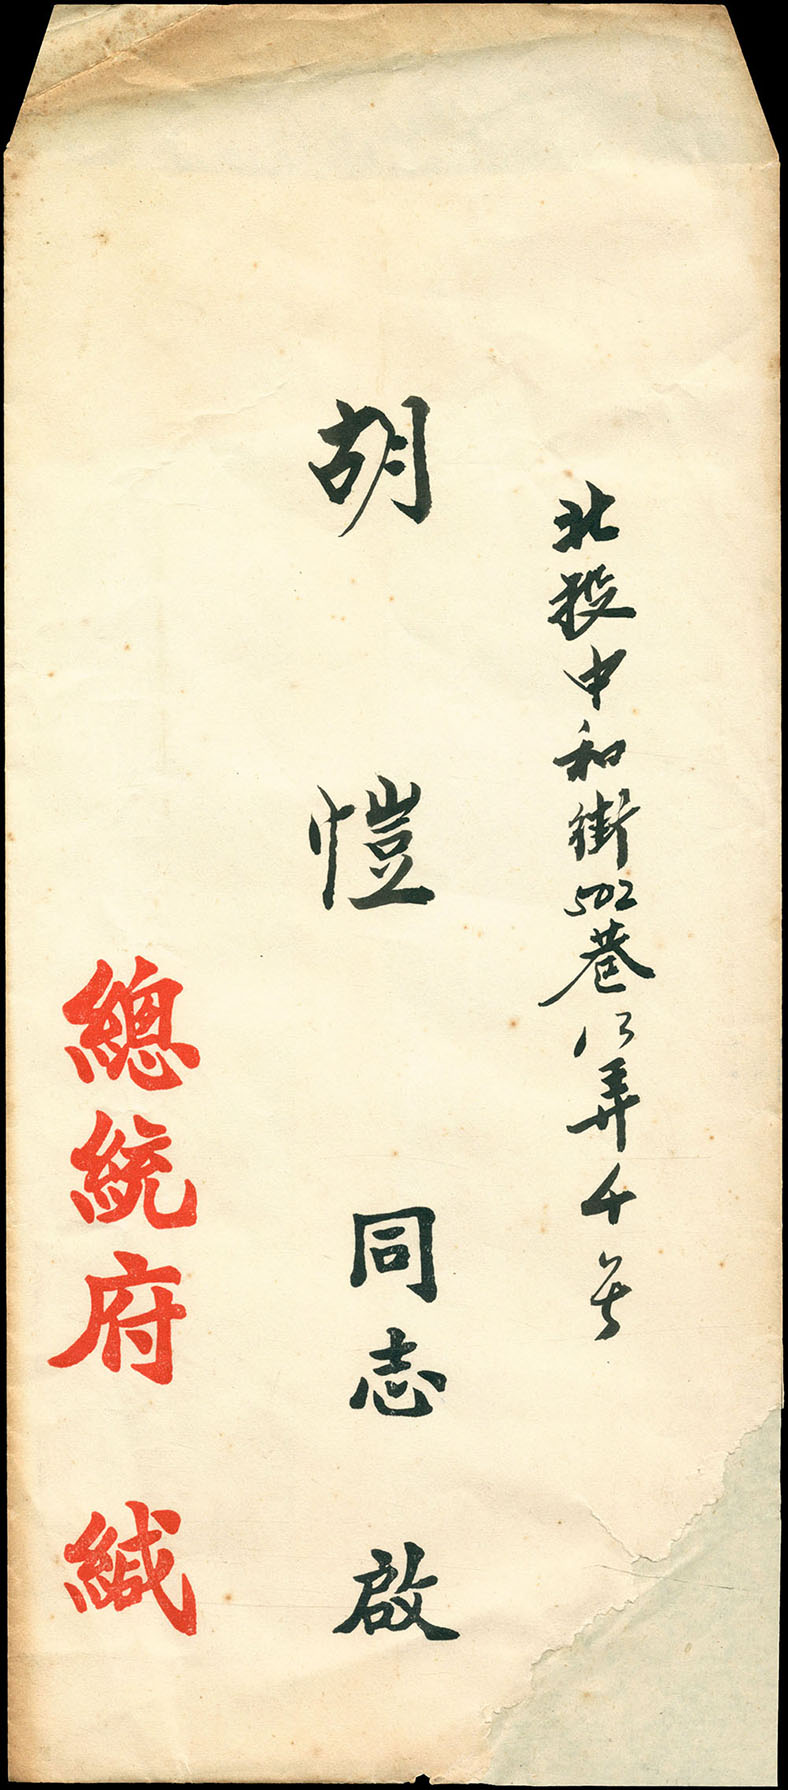 北投中和街502巷13弄4号
胡愷同志啟
總統府緘